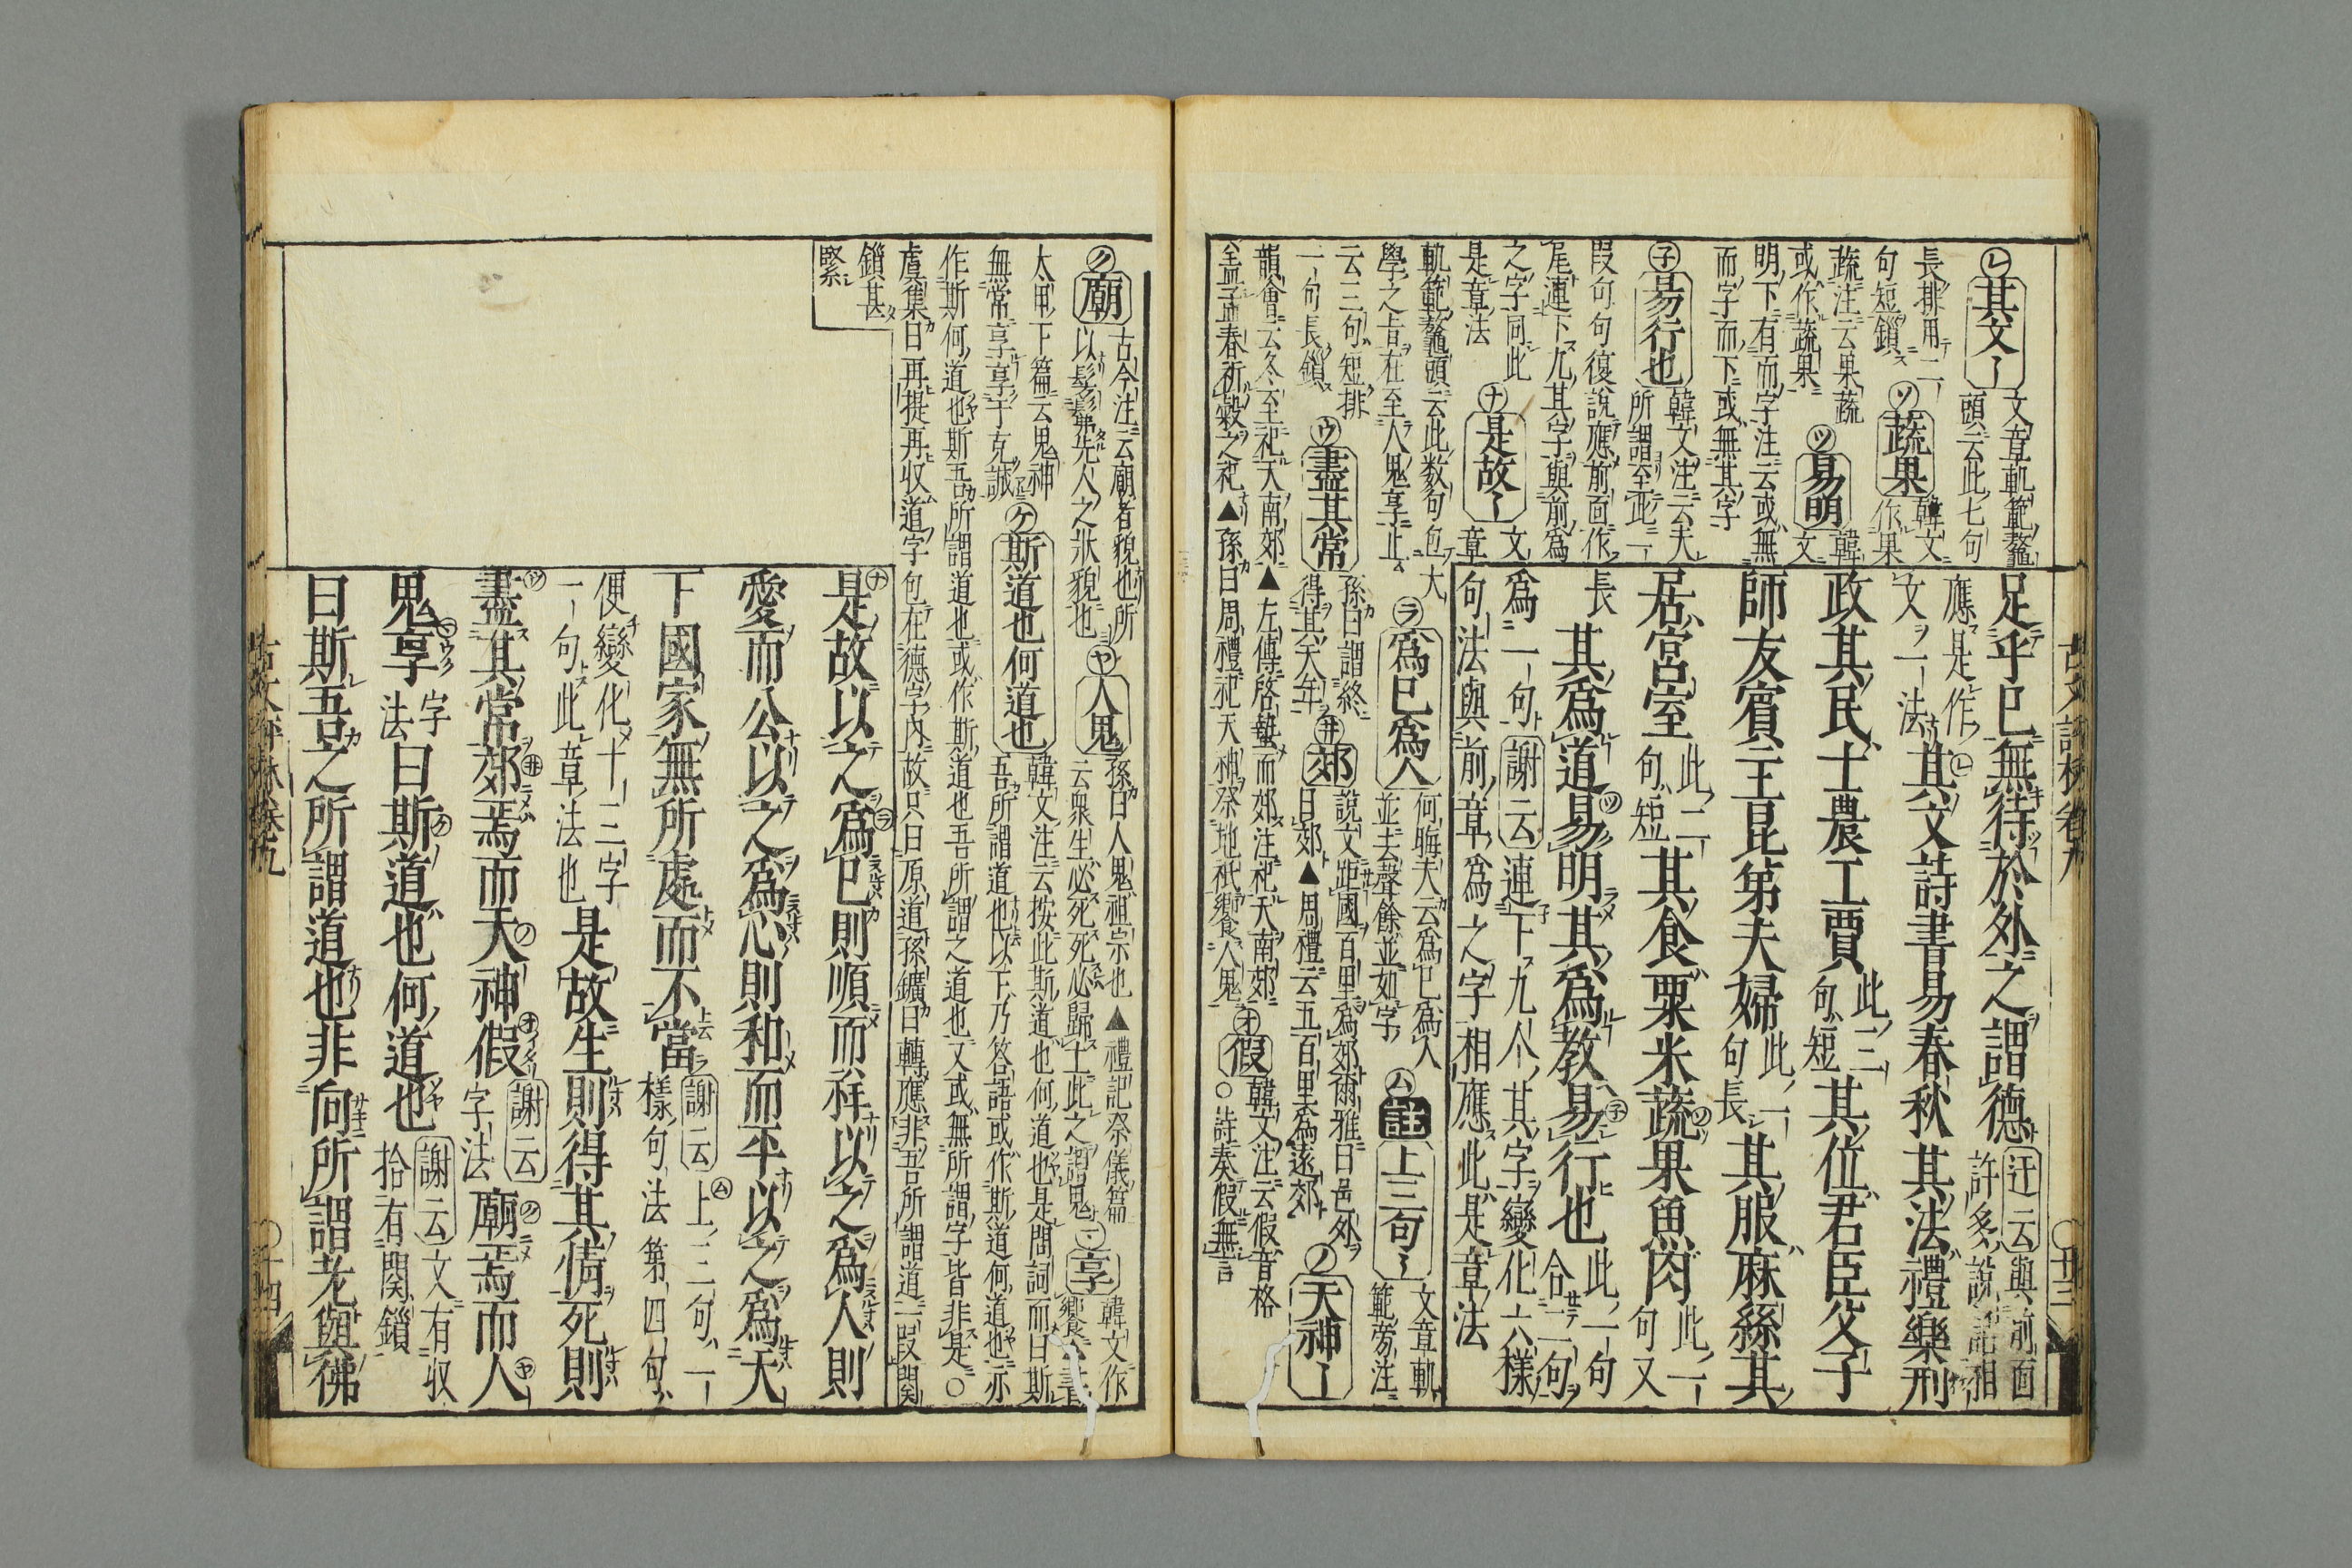 ㋹其文〻 文章軌範鰲
頭云此七句
長排用一
句短鎖 ㋡蔬果 韓文
作果
蔬注云果蔬
或作蔬果 ㋡易明 韓
文
明下有而字注云或無
而字而下或無其字
㋣易行也 韓文注云夫
所謂至此一
段句句復說應前面作
尾連下九其字與前為
之字同此
是章法 ㋤是故〻 文
章
軌範鰲頭云此数句包
學之旨在至人鬼享止 大
㋶爲巳爲人 何晦夫云爲巳爲人
並去聲餘並如字
㋰註 上三句〻 文章軌
範旁注
云三句短排
一句長鎖 ㋒盡其常 孫曰謂終
得其天年
㋼郊 說文距國百里為郊爾雅曰邑外
曰郊▲周禮云五百里為遠郊
㋨天神〻
韻會云冬至祀天南郊▲左傳啓蟄而郊注祀天南郊
孟春祈穀之祀▲孫曰周禮祀天神祭地祇饗人鬼
㋔假 韓文注云假音格
○詩奏假無言
足乎巳無待於外之謂德 迂云與前面
許多說話相
應是作
文一法 其文詩書易春秋其法禮樂刑
政其民士農工賈 此二
句短 其位君臣父子
師友賓主昆弟夫婦 此一
句長 其服麻絲其
居宮室 此二
句短 其食粟米蔬果魚肉 此一
句又
長 其爲道易明其爲教易行也 此一句
合二句
爲一句 謝云 連下九个其字變化六樣
句法與前章爲之字相應此是章法
古文評林卷九
廿三
㋗廟 古今注云廟者貌也所
以髣髴先人之狀貌也
㋳人鬼 孫曰人鬼祖宗也▲禮記祭儀篇
云衆生必死死必歸土此之謂鬼
㋮享 韓文作
饗
太甲下篇云鬼神
無常享享于克誠 ㋘斯道也何道也 韓文注云按此斯道也何道也是問詞而曰斯
吾所謂道也以下乃答語或作斯道何道也亦
作斯何道也斯吾所謂道也或作斯道也吾所謂之道也又或無所謂字皆非是○
虞集曰再提再収道字包在德字內故只曰原道孫鑛曰轉應非吾所謂道一段関
鎖甚
緊
是故以之爲巳則順而祥以之爲人則
愛而公以之爲心則和而平以之爲天
下國家無所處而不當 謝云 上三句一
樣句法第四句
便變化十三字
一句此章法也 是故生則得其情死則
盡其常郊焉而天神假 謝云
字法 廟焉而人
鬼享 字
法 曰斯道也何道也 謝云 文有収
拾有関鎖
曰斯吾之所謂道也非向所謂老與佛
古文評林卷九
廿四